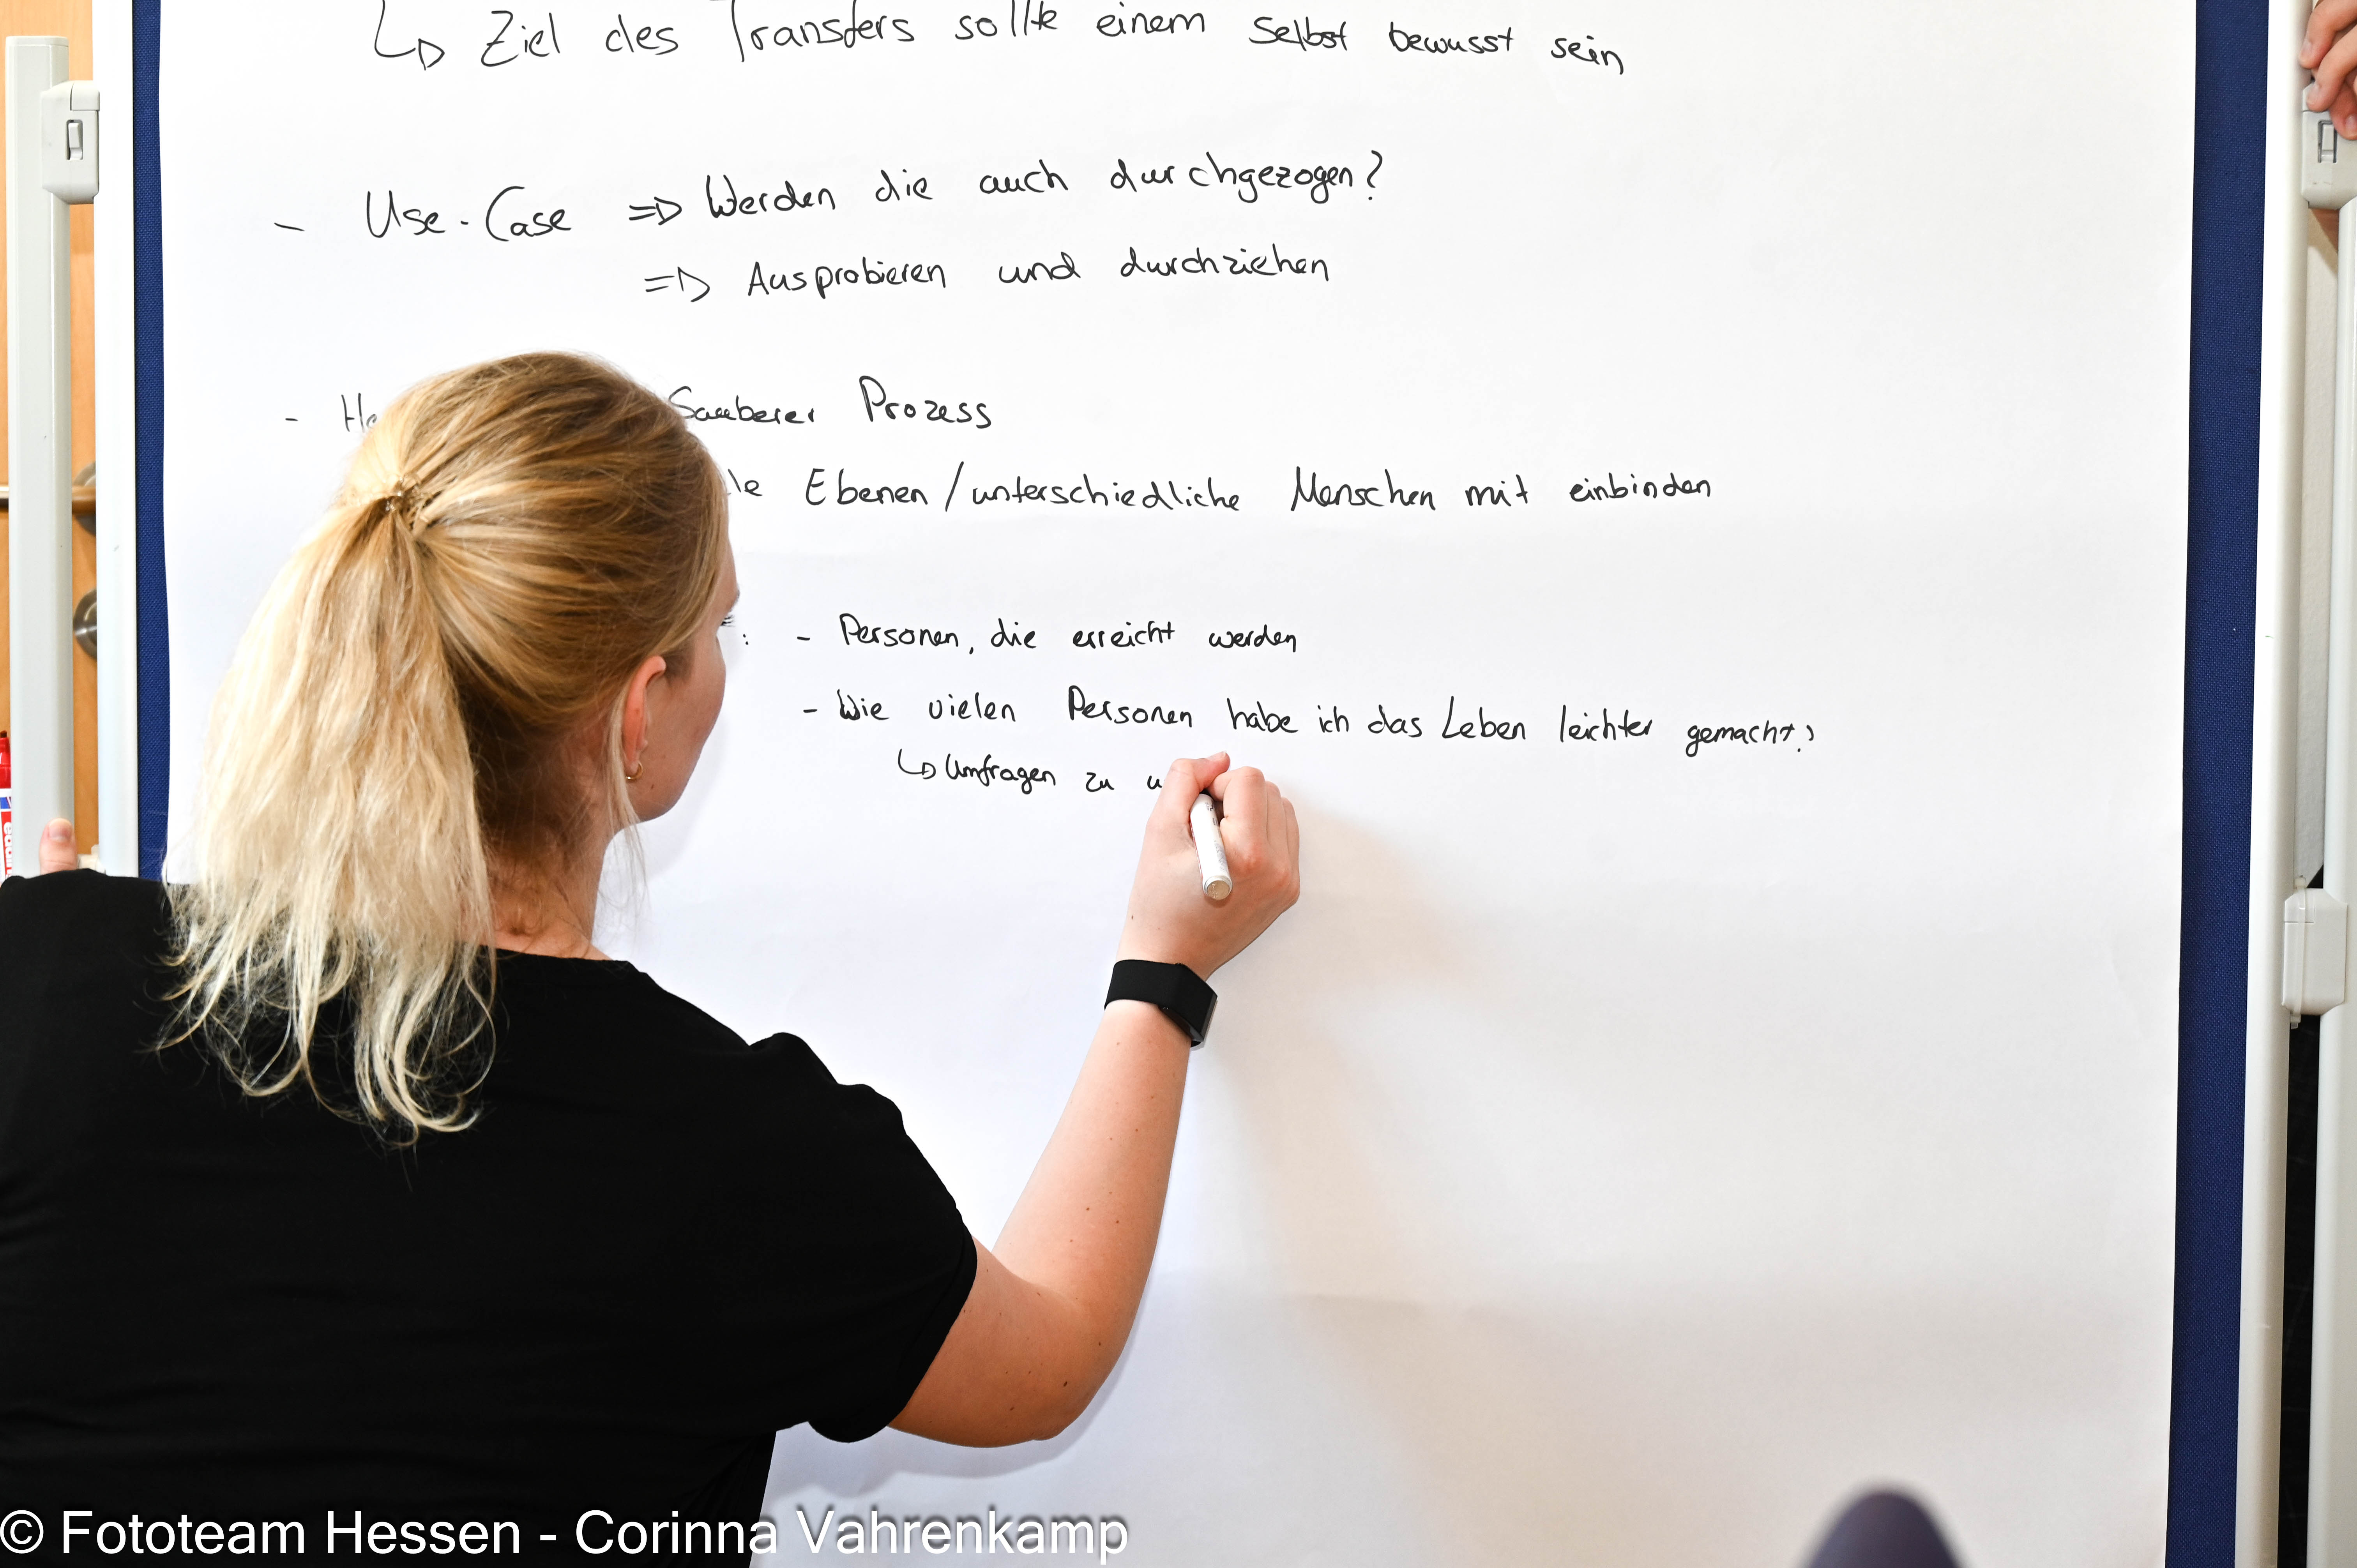 ↳ Ziel des Transfers sollte einem selbst bewusst sein
- Use-Case => Werden die auch durchgezogen?
=> Ausprobieren und durchziehen
- Sauberer Prozess
Ebenen/unterschiedliche Menschen mit einbinden
: - Personen, die erreicht werden
- Wie vielen Personen habe ich das Leben leichter gemacht?
↳ Umfragen zu
© Fototeam Hessen - Corinna Vahrenkamp